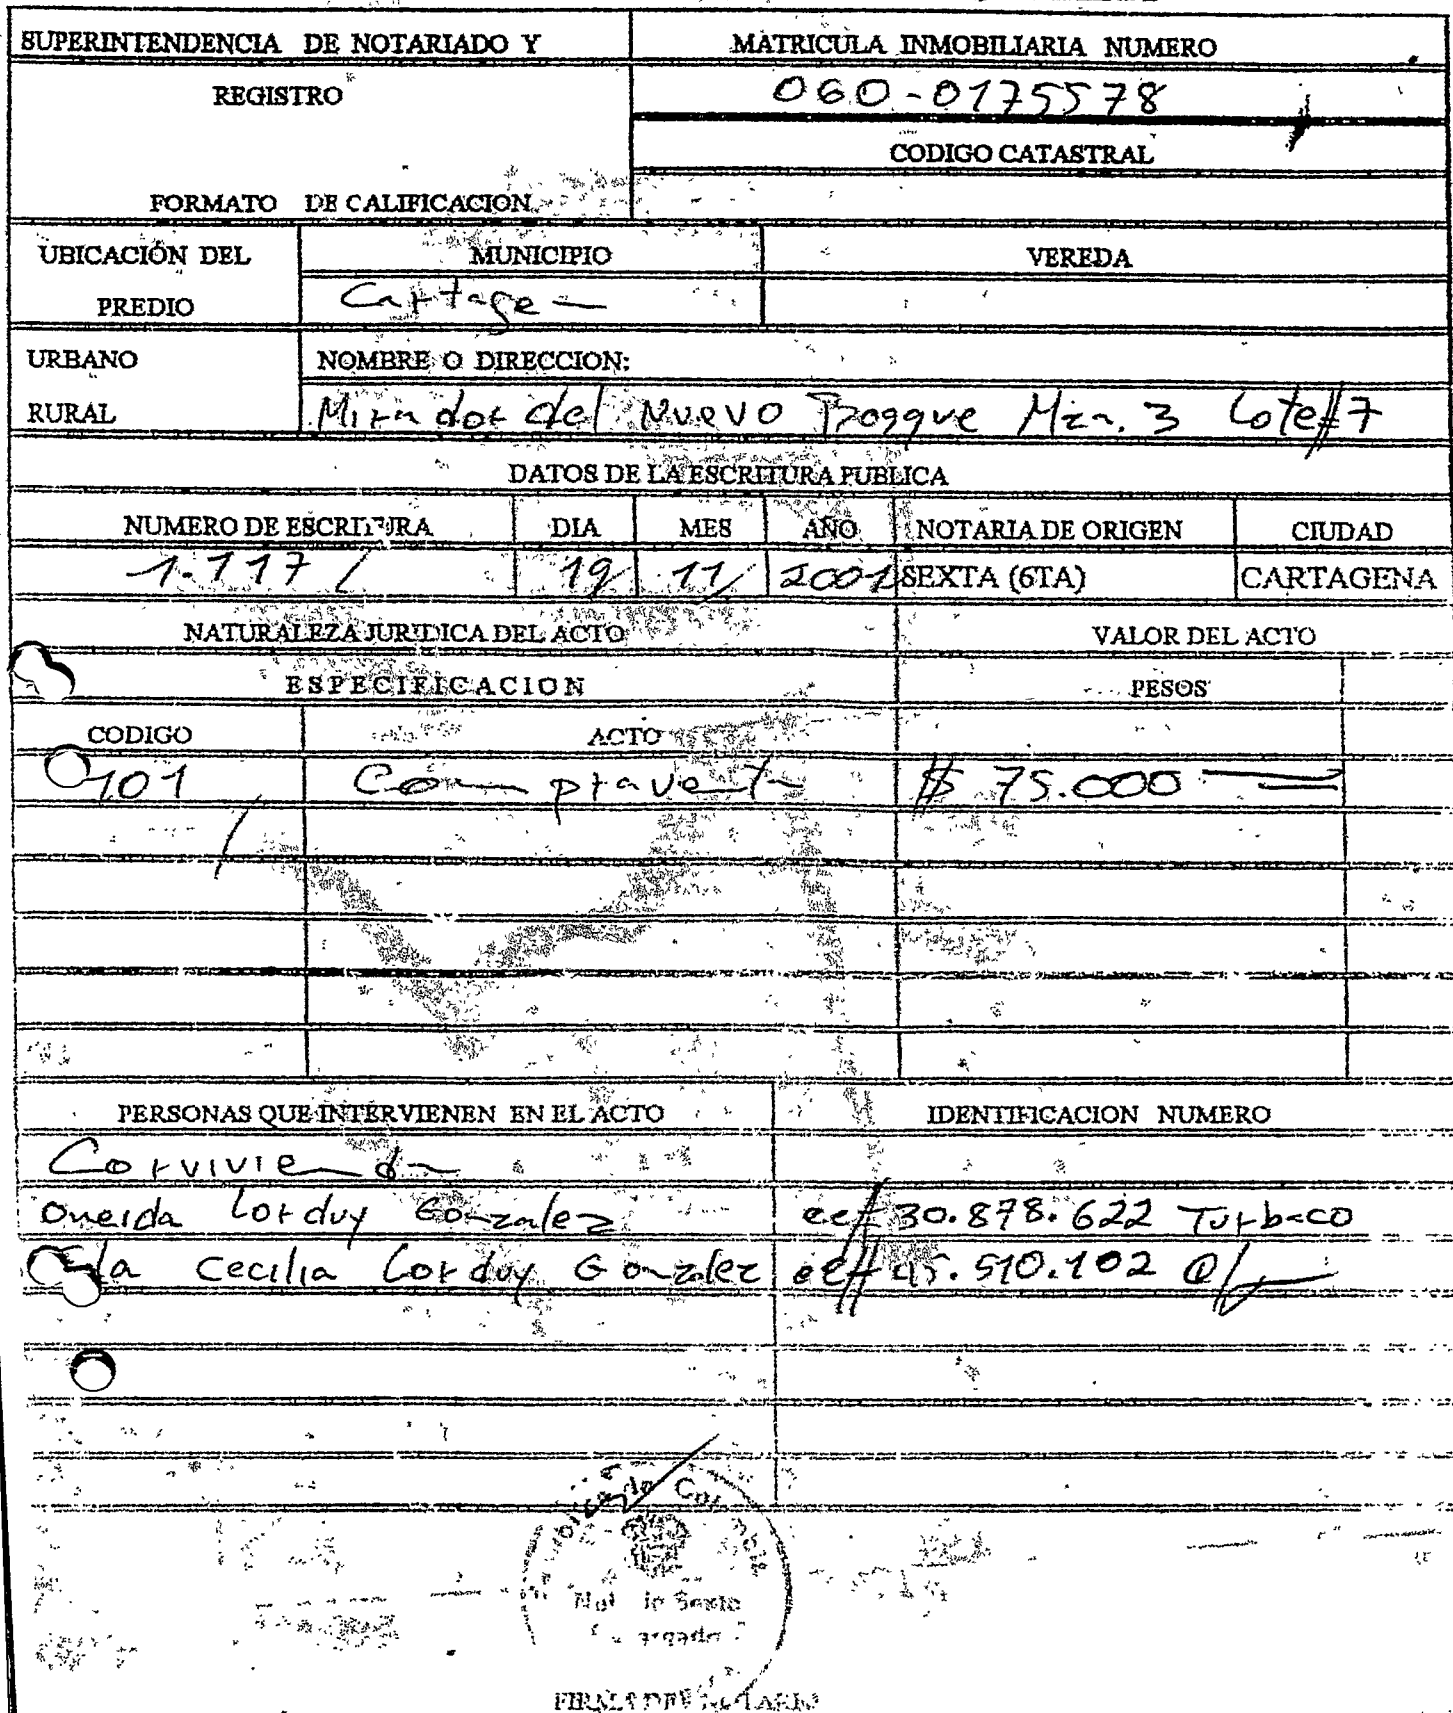 SUPERINTENDENCIA DE NOTARIADO Y
REGISTRO
FORMATO DE CALIFICACION
MATRICULA INMOBILIARIA NUMERO
060-0175578
CODIGO CATASTRAL
UBICACIÓN DEL
PREDIO
MUNICIPIO
VEREDA
Cartagena
URBANO
RURAL
NOMBRE O DIRECCION:
Mirador del Nuevo Bosque Mzn. 3 Lote #7
DATOS DE LA ESCRITURA PUBLICA
NUMERO DE ESCRITURA DIA MES AÑO NOTARIA DE ORIGEN CIUDAD
1.117 / 19/ 11/ 2001 SEXTA (6TA) CARTAGENA
NATURALEZA JURIDICA DEL ACTO VALOR DEL ACTO
ESPECIFICACION PESOS
CODIGO ACTO
101 Compraventa $ 75.000
PERSONAS QUE INTERVIENEN EN EL ACTO IDENTIFICACION NUMERO
Corvivienda
Oneida Lorduy Gonzalez cc# 30.878.622 Turbaco
Cecilia Lorduy Gonzalez cc# 45.510.102
de Colombia
Sexto
FIRMA DEL NOTARIO